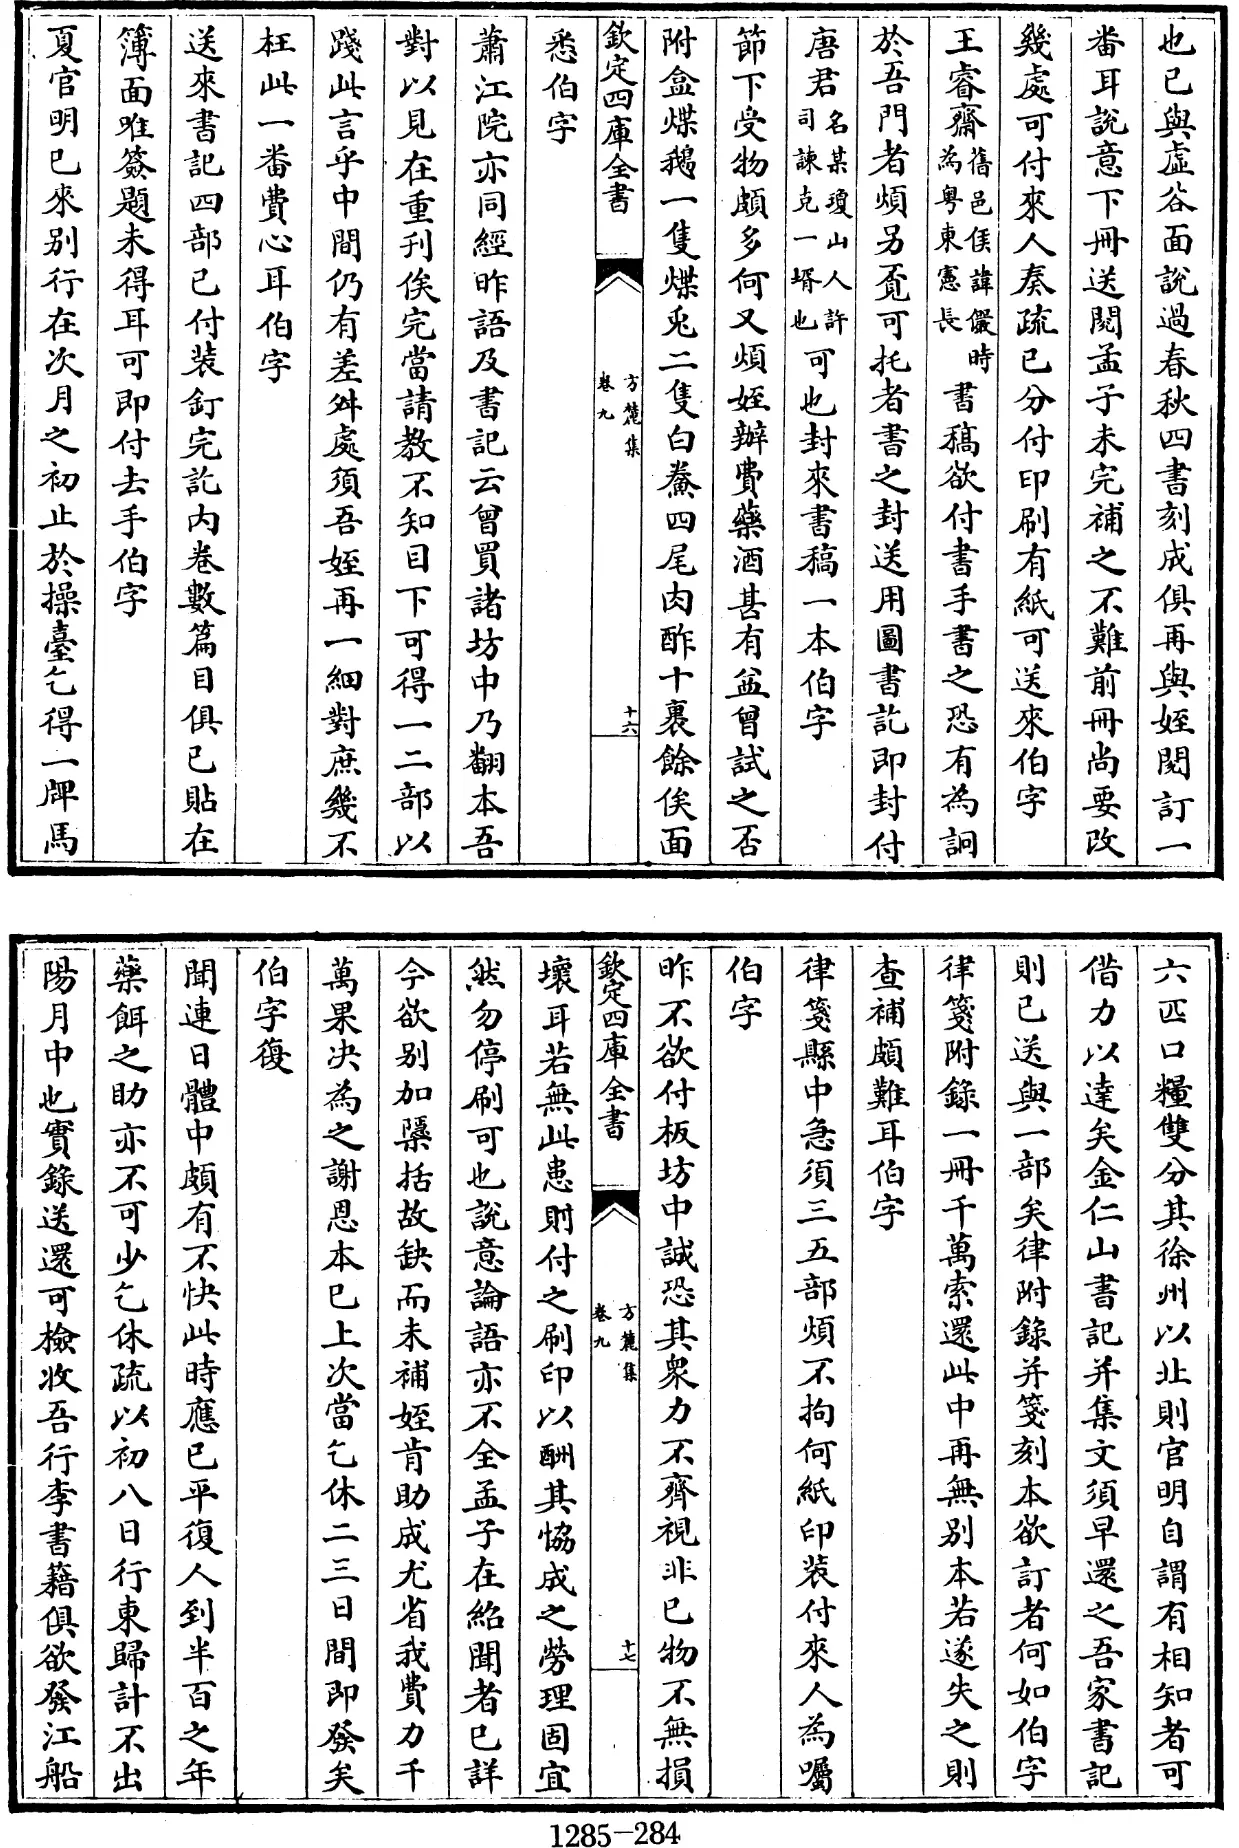 也已與虛谷面說過春秋四書刻成俱再與姪閱訂一
番耳說意下冊送閱孟子未完補之不難前冊尚要改
幾處可付來人奏疏已分付印刷有紙可送來伯字
王睿齋舊邑侯諱儼時為粵東憲長書稿欲付書手書之恐有為訶
於吾門者煩另覔可托者書之封送用圖書訖即封付
唐君名某瓊山人許司諫克一壻也可也封來書稿一本伯字
節下受物頗多何又煩姪辦費藥酒甚有益曾試之否
附盒煠鵝一隻煠兎二隻白鮝四尾肉酢十裹餘俟面
欽定四庫全書
方麓集
卷九
十六
悉伯字
蕭江院亦同經昨語及書記云曾買諸坊中乃翻本吾
對以見在重刋俟完當請教不知目下可得一二部以
踐此言乎中間仍有差舛處須吾姪再一細對庶幾不
枉此一番費心耳伯字
送來書記四部已付裝釘完訖内卷數篇目俱已貼在
簿面唯簽題未得耳可即付去手伯字
夏官明已來别行在次月之初止於操臺乞得一牌馬
六匹口糧雙分其徐州以北則官明自謂有相知者可
借力以達矣金仁山書記并集文須早還之吾家書記
則已送與一部矣律附錄并箋刻本欲訂者何如伯字
律箋附錄一冊千萬索還此中再無别本若遂失之則
查補頗難耳伯字
律箋縣中急須三五部煩不拘何紙印裝付來人為囑
伯字
昨不欲付板坊中誠恐其衆力不齊視非已物不無損
欽定四庫全書
方麓集
卷九
十七
壞耳若無此患則付之刷印以酬其恊成之勞理固宜
然勿停刷可也說意論語亦不全孟子在紹聞者已詳
今欲别加櫽括故缺而未補姪肯助成尤省我費力千
萬果決為之謝恩本已上次當乞休二三日間即發矣
伯字復
聞連日體中頗有不快此時應已平復人到半百之年
藥餌之助亦不可少乞休疏以初八日行東歸計不出
陽月中也實錄送還可檢收吾行李書籍俱欲發江船
1285-284